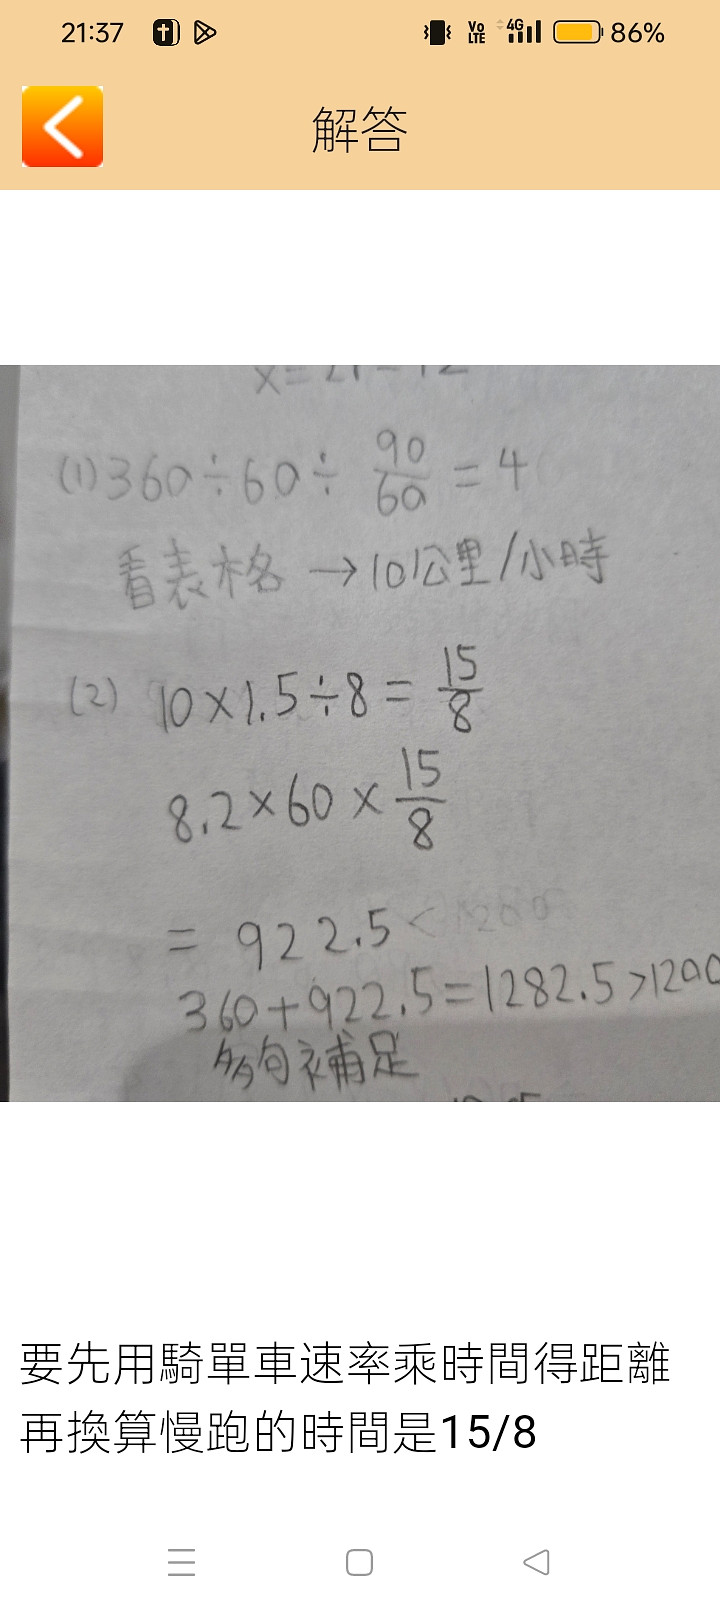 21:37
Vo LTE 4G 86%
解答
(1) 360÷60÷ 90/60 = 4
看表格 → 10公里/小時
(2) 10×1.5÷8 = 15/8
8.2×60× 15/8
= 922.5 <
360+922.5=1282.5>1200
多夠補足
要先用騎單車速率乘時間得距離
再換算慢跑的時間是15/8